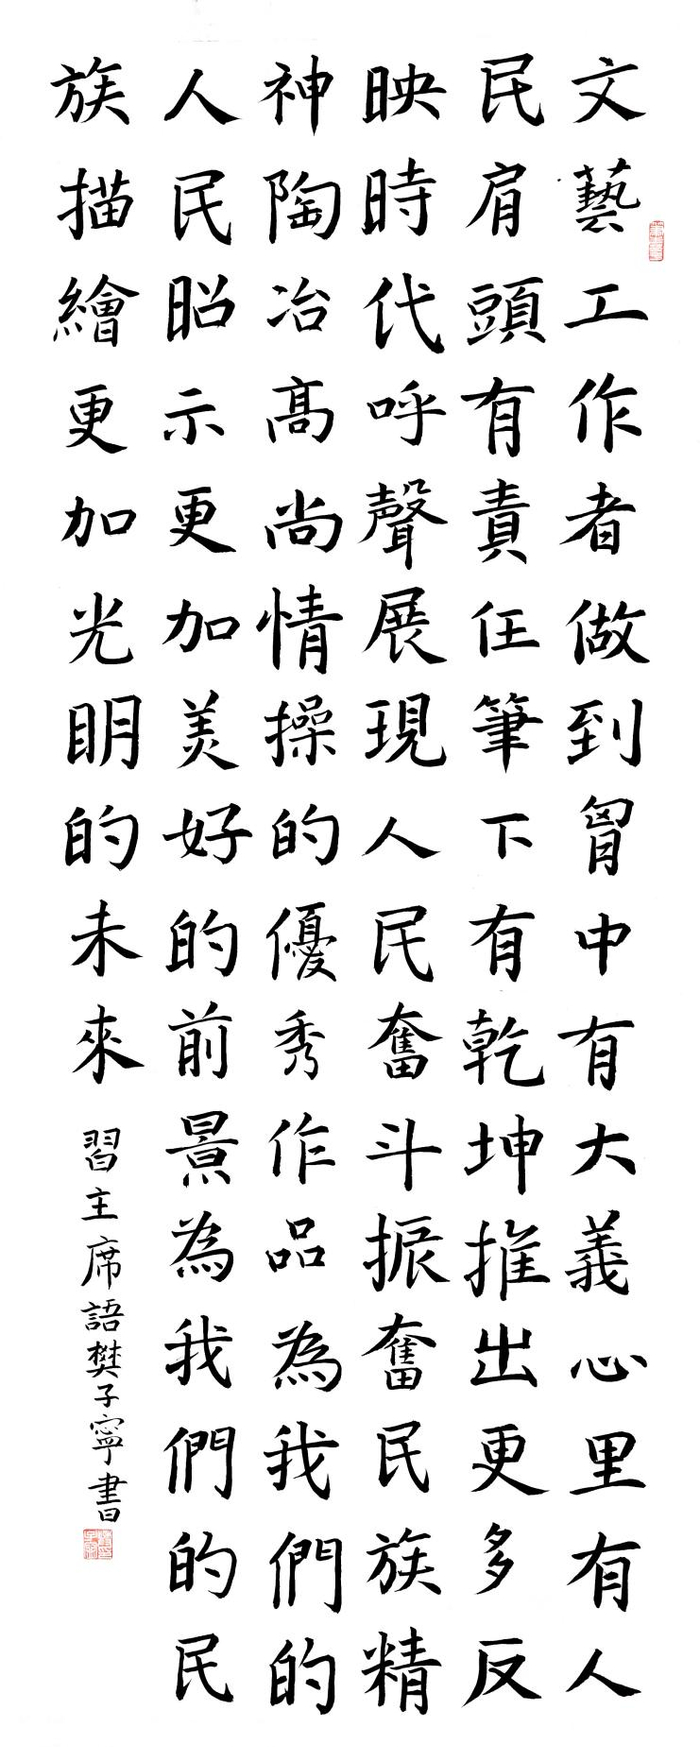 文藝工作者做到胷中有大義心里有人
民肩頭有責任筆下有乾坤推出更多反
映時代呼聲展現人民奮斗振奮民族精
神陶冶高尚情操的優秀作品為我們的
人民昭示更加美好的前景為我們的民
族描繪更加光明的未來
習主席語樊子寧書